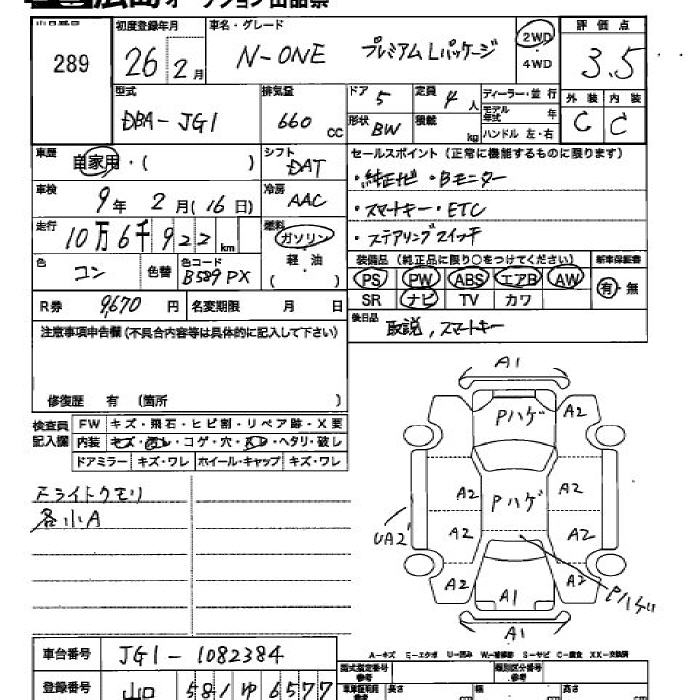 広島 オークション出品票
出品番号 289
初度登録年月 26年 2月
車名・グレード N-ONE プレミアムLパッケージ
2WD ・ 4WD
評価点 3.5
型式 DBA-JG1
排気量 660 cc
ドア 5 定員 4人
形状 BW 積載 kg
ディーラー・並行
モデル年式 年
ハンドル 左・右
外装 内装
C C
車歴 自家用・( )
シフト DAT
セールスポイント(正常に機能するものに限ります)
・純正ナビ ・Bモニター
・スマートキー・ETC
・ステアリングスイッチ
車検 9年 2月(16日)
冷房 AAC
走行 10万6千922km
燃料 ガソリン・軽油( )
色 コン 色替 色コード B589PX
装備品(純正品に限り○をつけてください) 新車保証書
PS PW ABS エアB AW 有・無
SR ナビ TV カワ
R券 9,670円 名変期限 月 日
後日品 取説,スマートキー
注意事項申告欄(不具合内容等は具体的に記入して下さい)
修復歴 有 (箇所 )
検査員記入欄
FW キズ・飛石・ヒビ割・リペア跡・X要
内装 キズ・汚レ・コゲ・穴・スレ・ヘタリ・破レ
ドアミラー キズ・ワレ ホイール・キャップ キズ・ワレ
ライトクモリ
各小A
A1
Pハゲ A2
A2 Pハゲ A2
UA2 A2 A2
A2 A1 A2 Pハゲ
A1
A-キズ ミ-エクボ U-凹み W-補修跡 S-サビ C-腐食 XX-交換済
車台番号 JG1-1082384
型式指定番号 参考 類別区分番号 参考
登録番号 山口 581 ゆ 6577
長さ cm 幅 cm 高さ cm